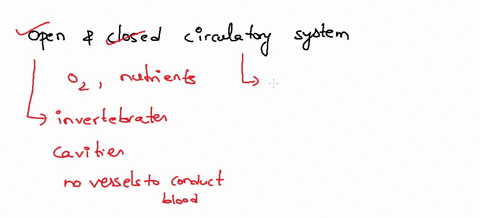 open & closed circulatory system
O2, nutrients
invertebrates
cavities
no vessels to conduct
blood